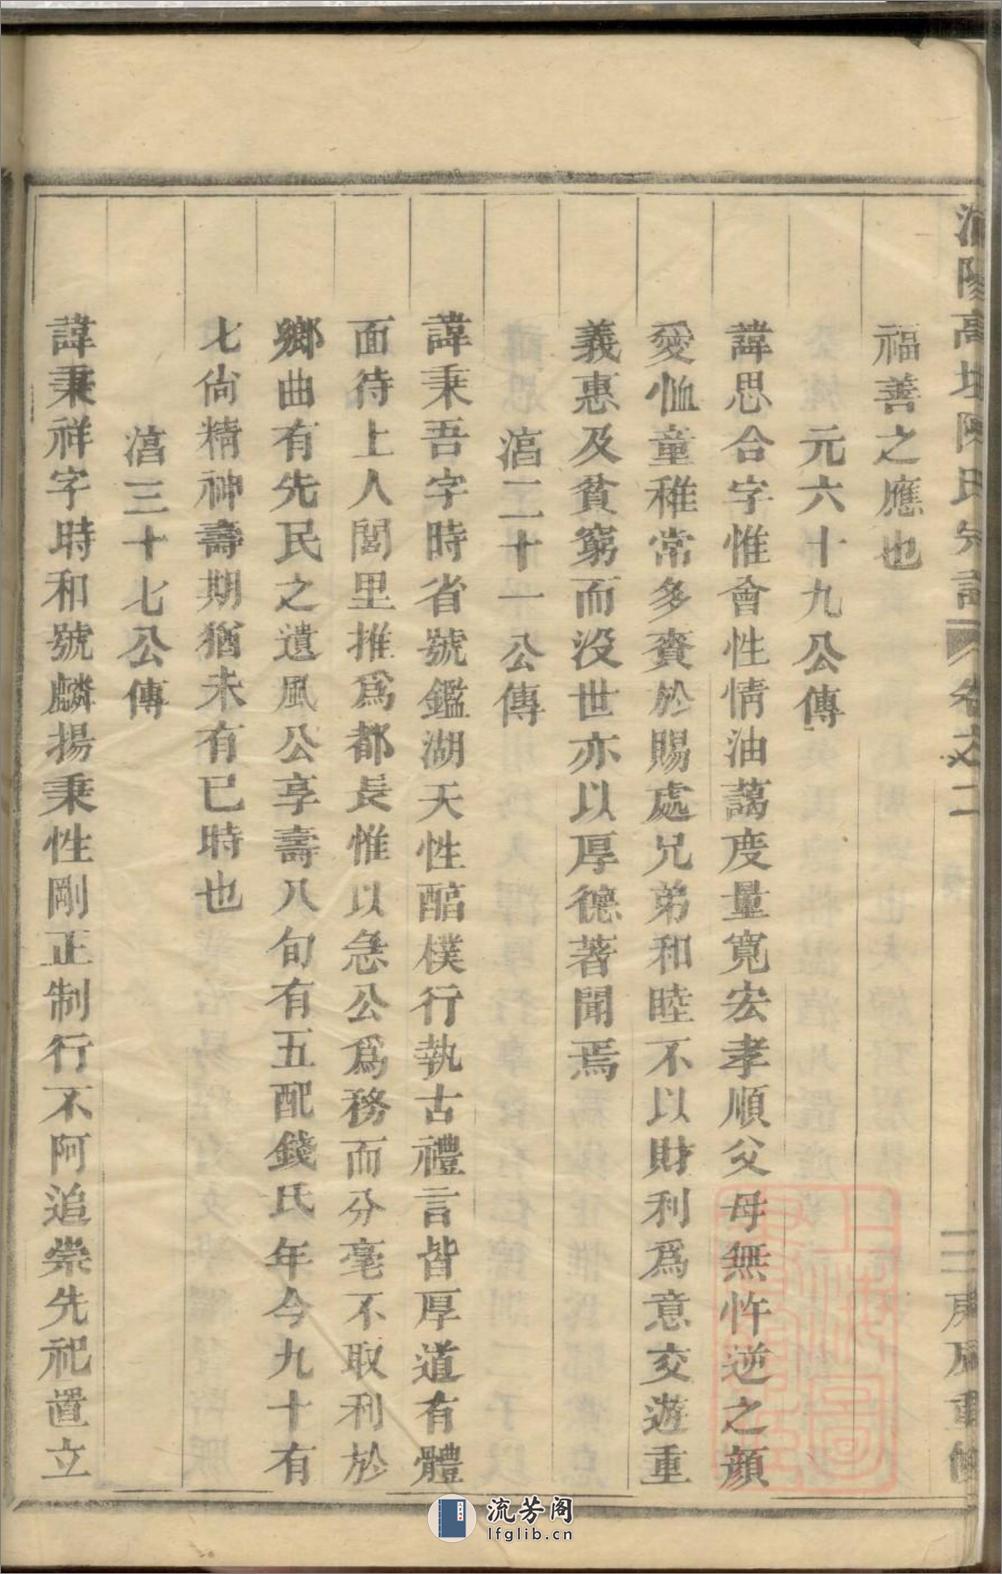 陽高 陳氏宗譜 卷之二
福善之應也
元六十九公傳
諱思合字惟會性情油藹度量寬宏孝順父母無忤逆之顔
愛恤童稚常多賚於賜處兄弟和睦不以財利爲意交遊重
義惠及貧窮而没世亦以厚德著聞焉
湻二十一公傳
諱秉吾字時省號鑑湖天性醕樸行執古禮言皆厚道有體
面待上人閭里推爲都長惟以急公爲務而分毫不取利於
鄉曲有先民之遺風公享壽八旬有五配錢氏年今九十有
七尙精神壽期猶未有已時也
湻三十七公傳
諱秉祥字時和號麟揚秉性剛正制行不阿追崇先祀置立
流芳阁
lfglib.cn